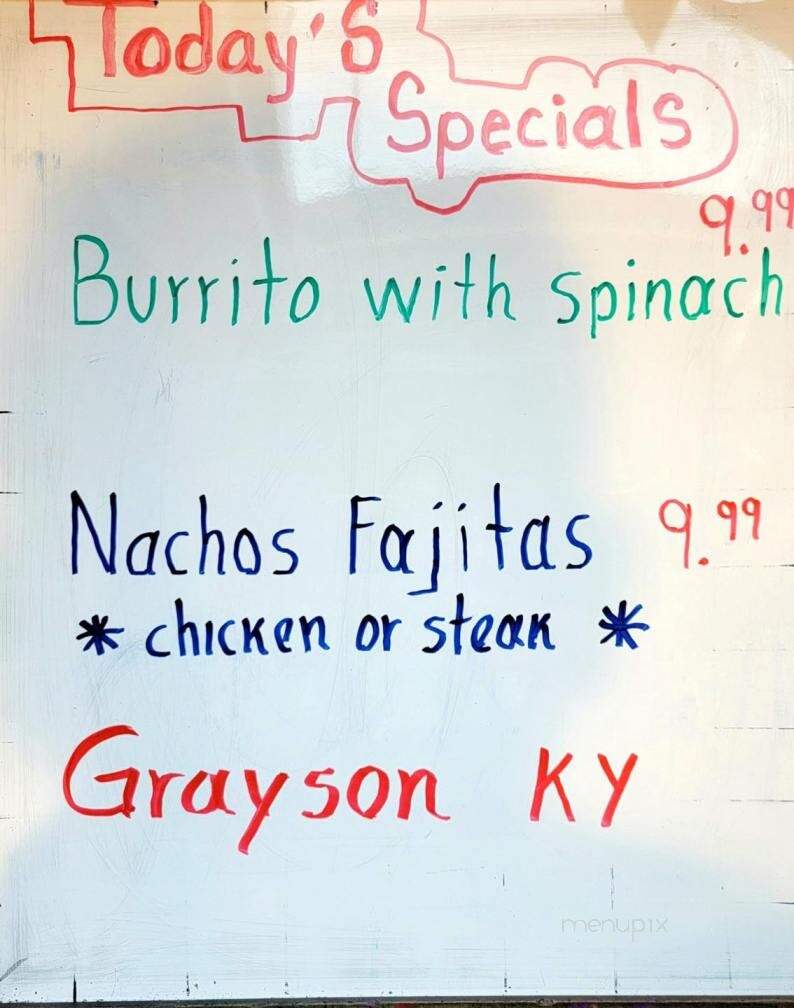 Today's
Specials
9.99
Burrito with spinach
Nachos Fajitas 9.99
* chicken or steak *
Grayson KY
menupix